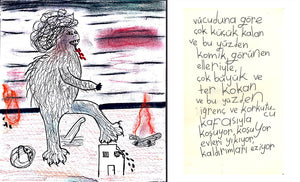 vücuduna göre
çok küçük kalan
ve bu yüzden
komik görünen
elleriyle,
çok büyük ve
ter kokan
ve bu yüzden
iğrenç ve korkutucu
kafasıyla
koşuyor, koşuyor
evleri yıkıyor,
kaldırımları eziyor